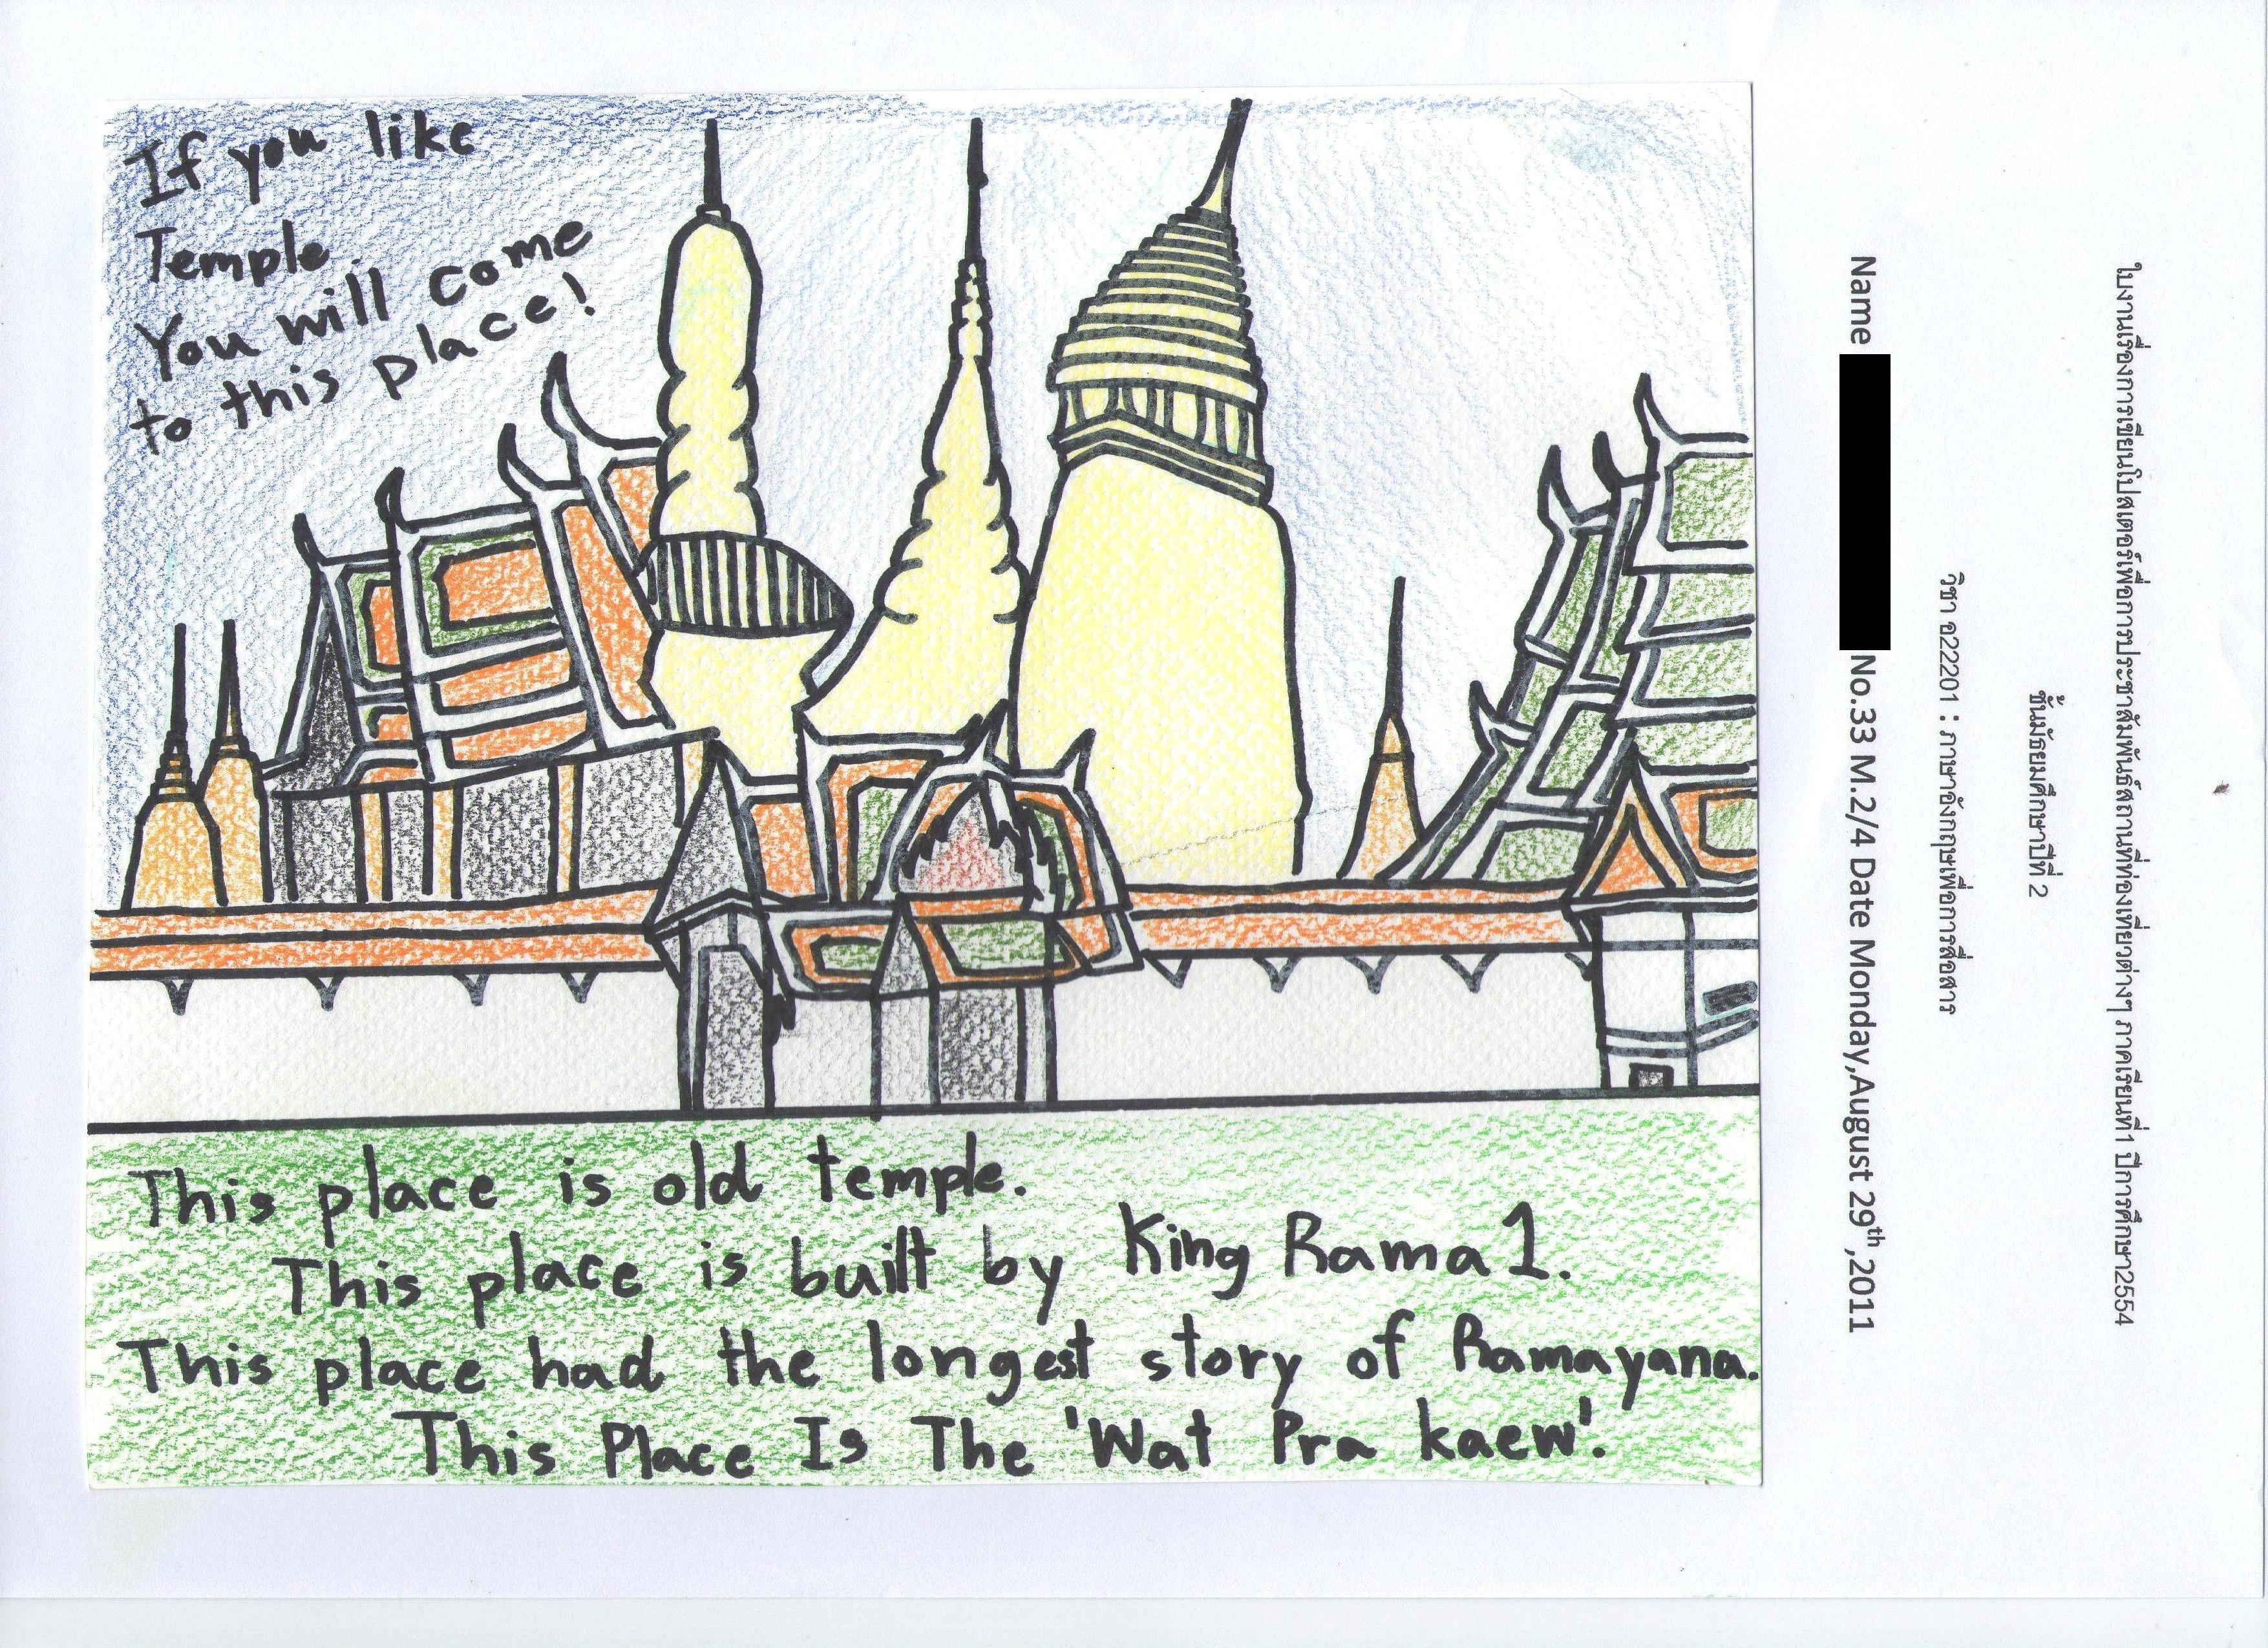 If you like
Temple
You will come
to this place!
This place is old temple.
This place is built by King Rama 1.
This place had the longest story of Ramayana.
This Place Is The 'Wat Pra kaew'.
ใบงานเรื่องการเขียนโปสเตอร์เพื่อการประชาสัมพันธ์สถานที่ท่องเที่ยวต่างๆ ภาคเรียนที่1 ปีการศึกษา2554
ชั้นมัธยมศึกษาปีที่ 2
วิชา อ22201 : ภาษาอังกฤษเพื่อการสื่อสาร
Name No.33 M.2/4 Date Monday,August 29th,2011